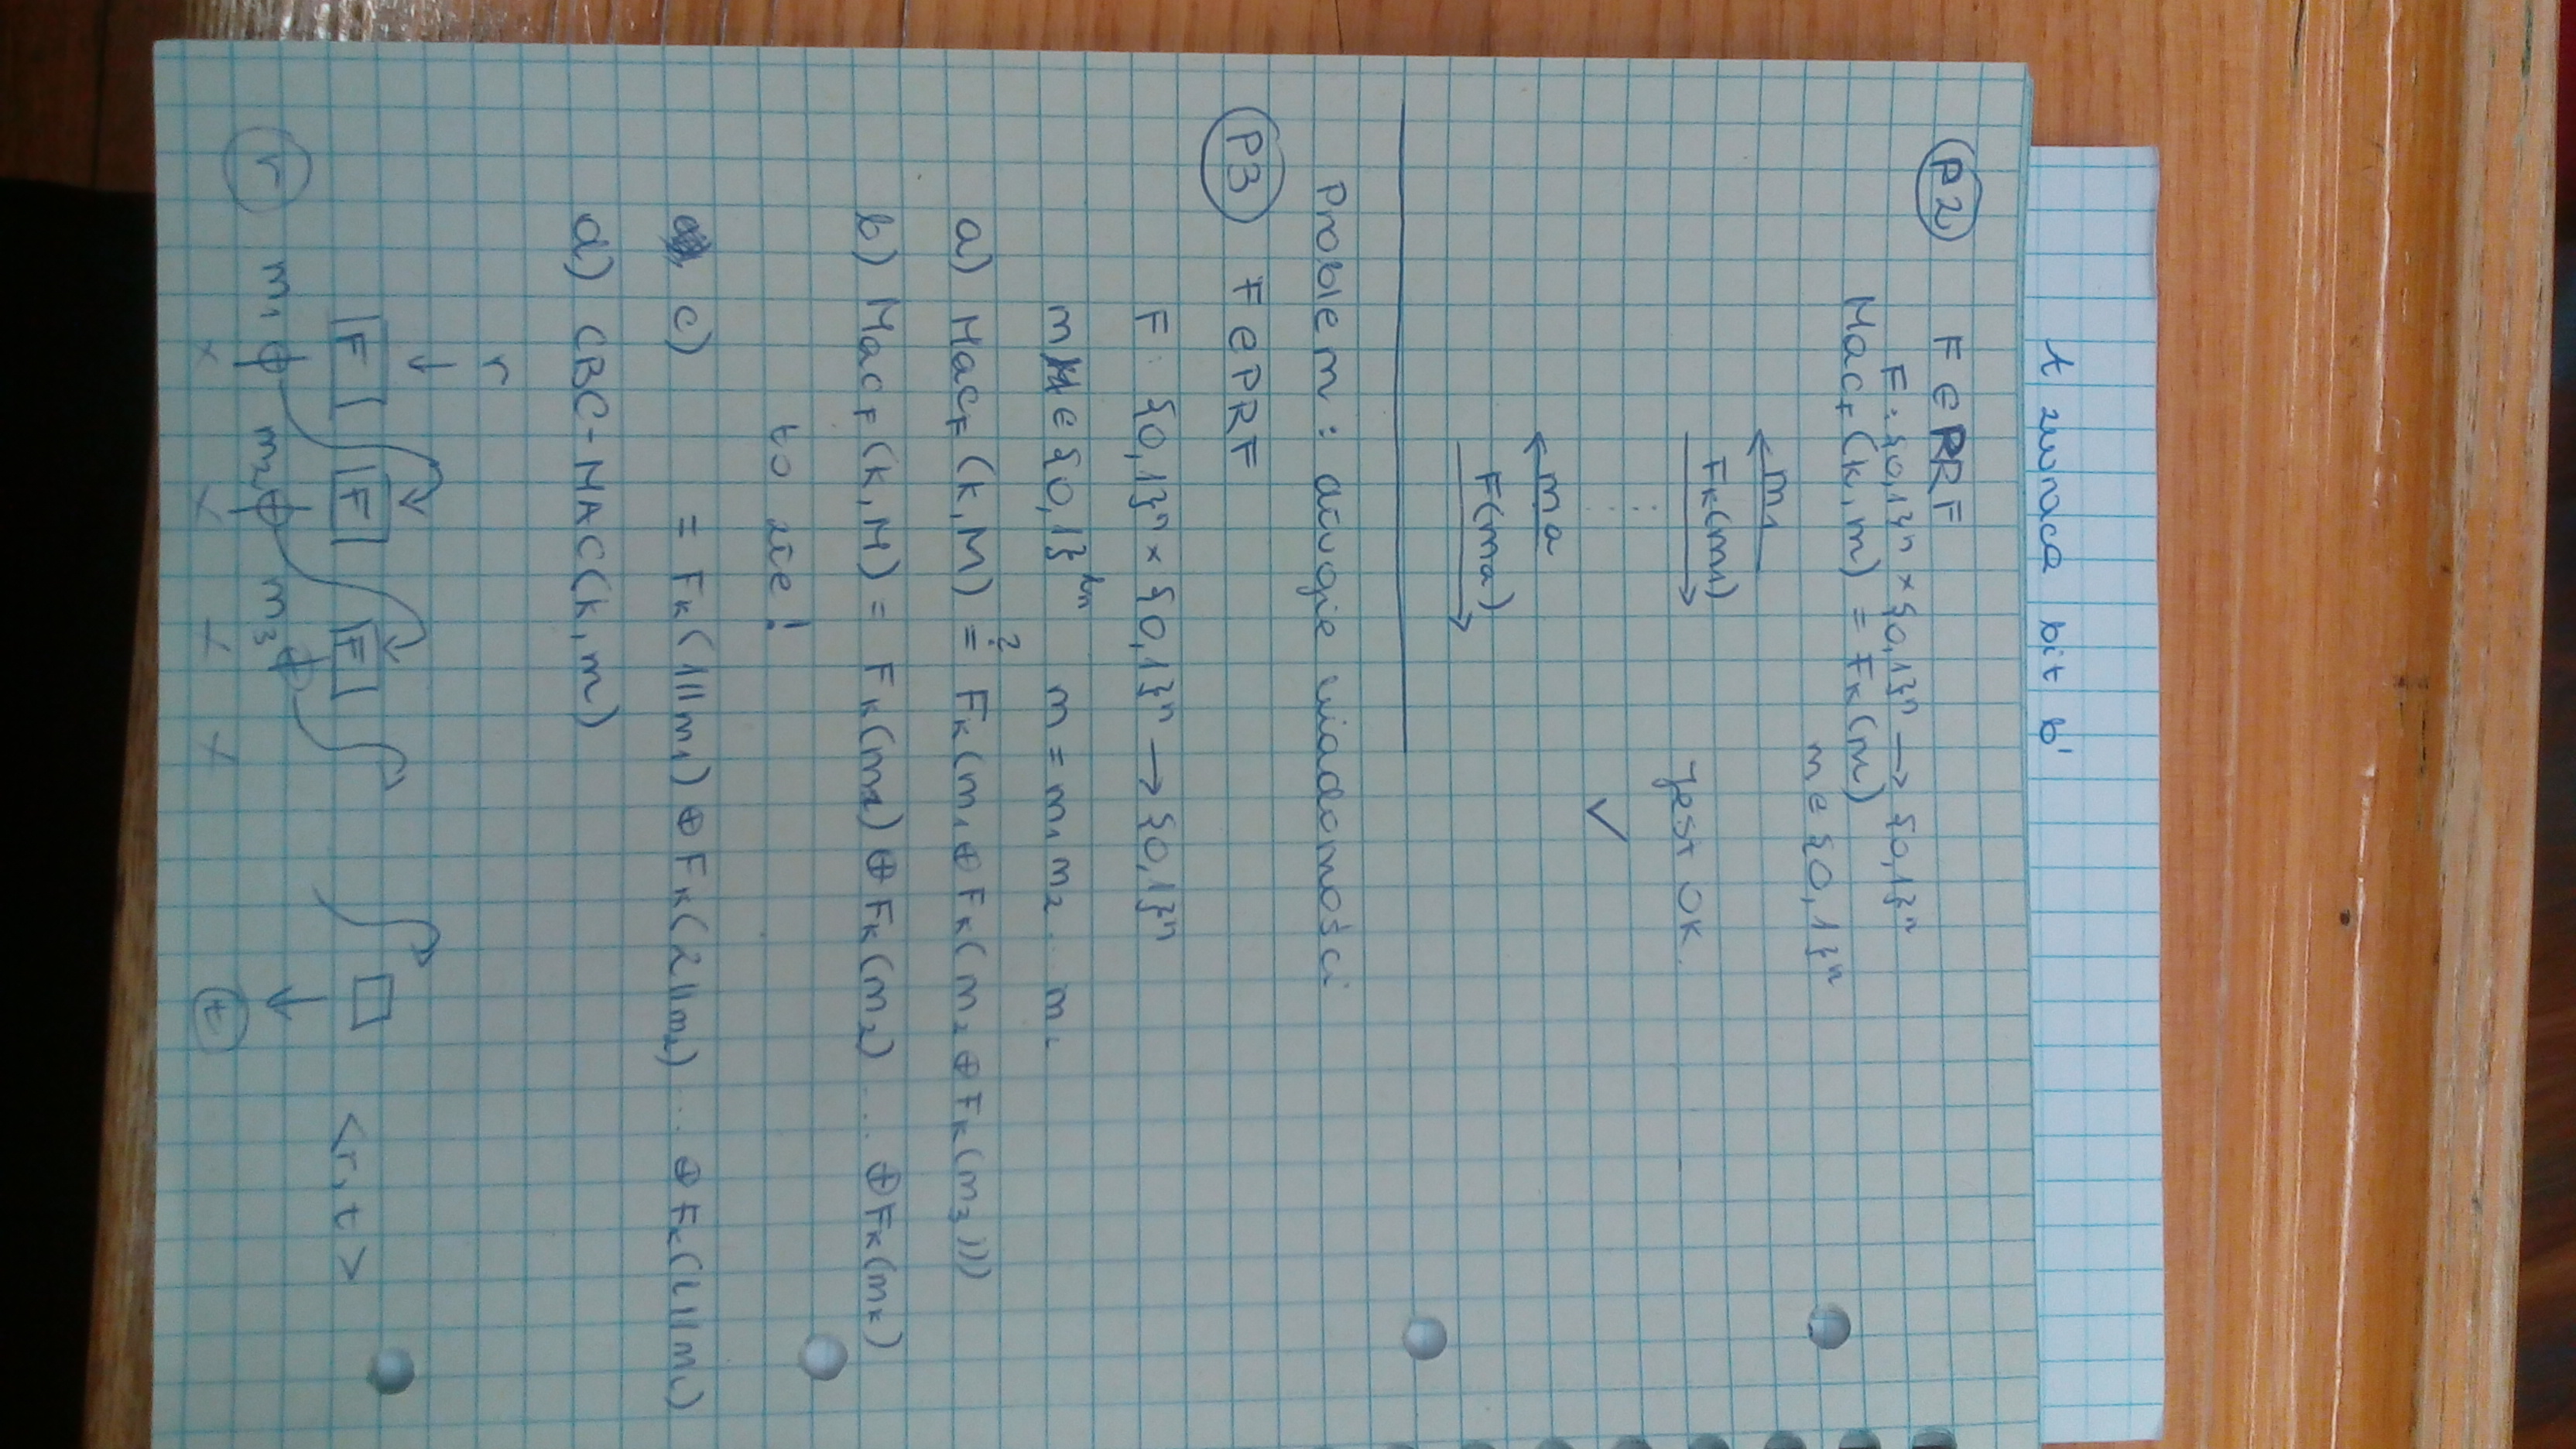 A zwraca bit b'
P2 F ∈ PRF
F: {0,1}ⁿ × {0,1}ⁿ → {0,1}ⁿ
Mac_F (k, m) = F_K(m)
m ∈ {0,1}ⁿ
m₁
F_K(m₁)
jest OK.
⋮
✓
ma
F(ma)
Problem: długie wiadomości
P3 F ∈ PRF
F: {0,1}ⁿ × {0,1}ⁿ → {0,1}ⁿ
m ∈ {0,1}ˡⁿ m = m₁ m₂ ... m_l
a) Mac_F (k, M) =? F_K(m₁ ⊕ F_K(m₂ ⊕ F_K(m₃)))
b) Mac_F (k, M) = F_K(m₁) ⊕ F_K(m₂) ... ⊕ F_K(m_k)
to złe!
c) = F_K(1||m₁) ⊕ F_K(2||m₂) ... ⊕ F_K(l||m_l)
d) CBC-MAC(k, m)
r
F F F <r, t>
m₁ m₂ m₃
r x x x x t